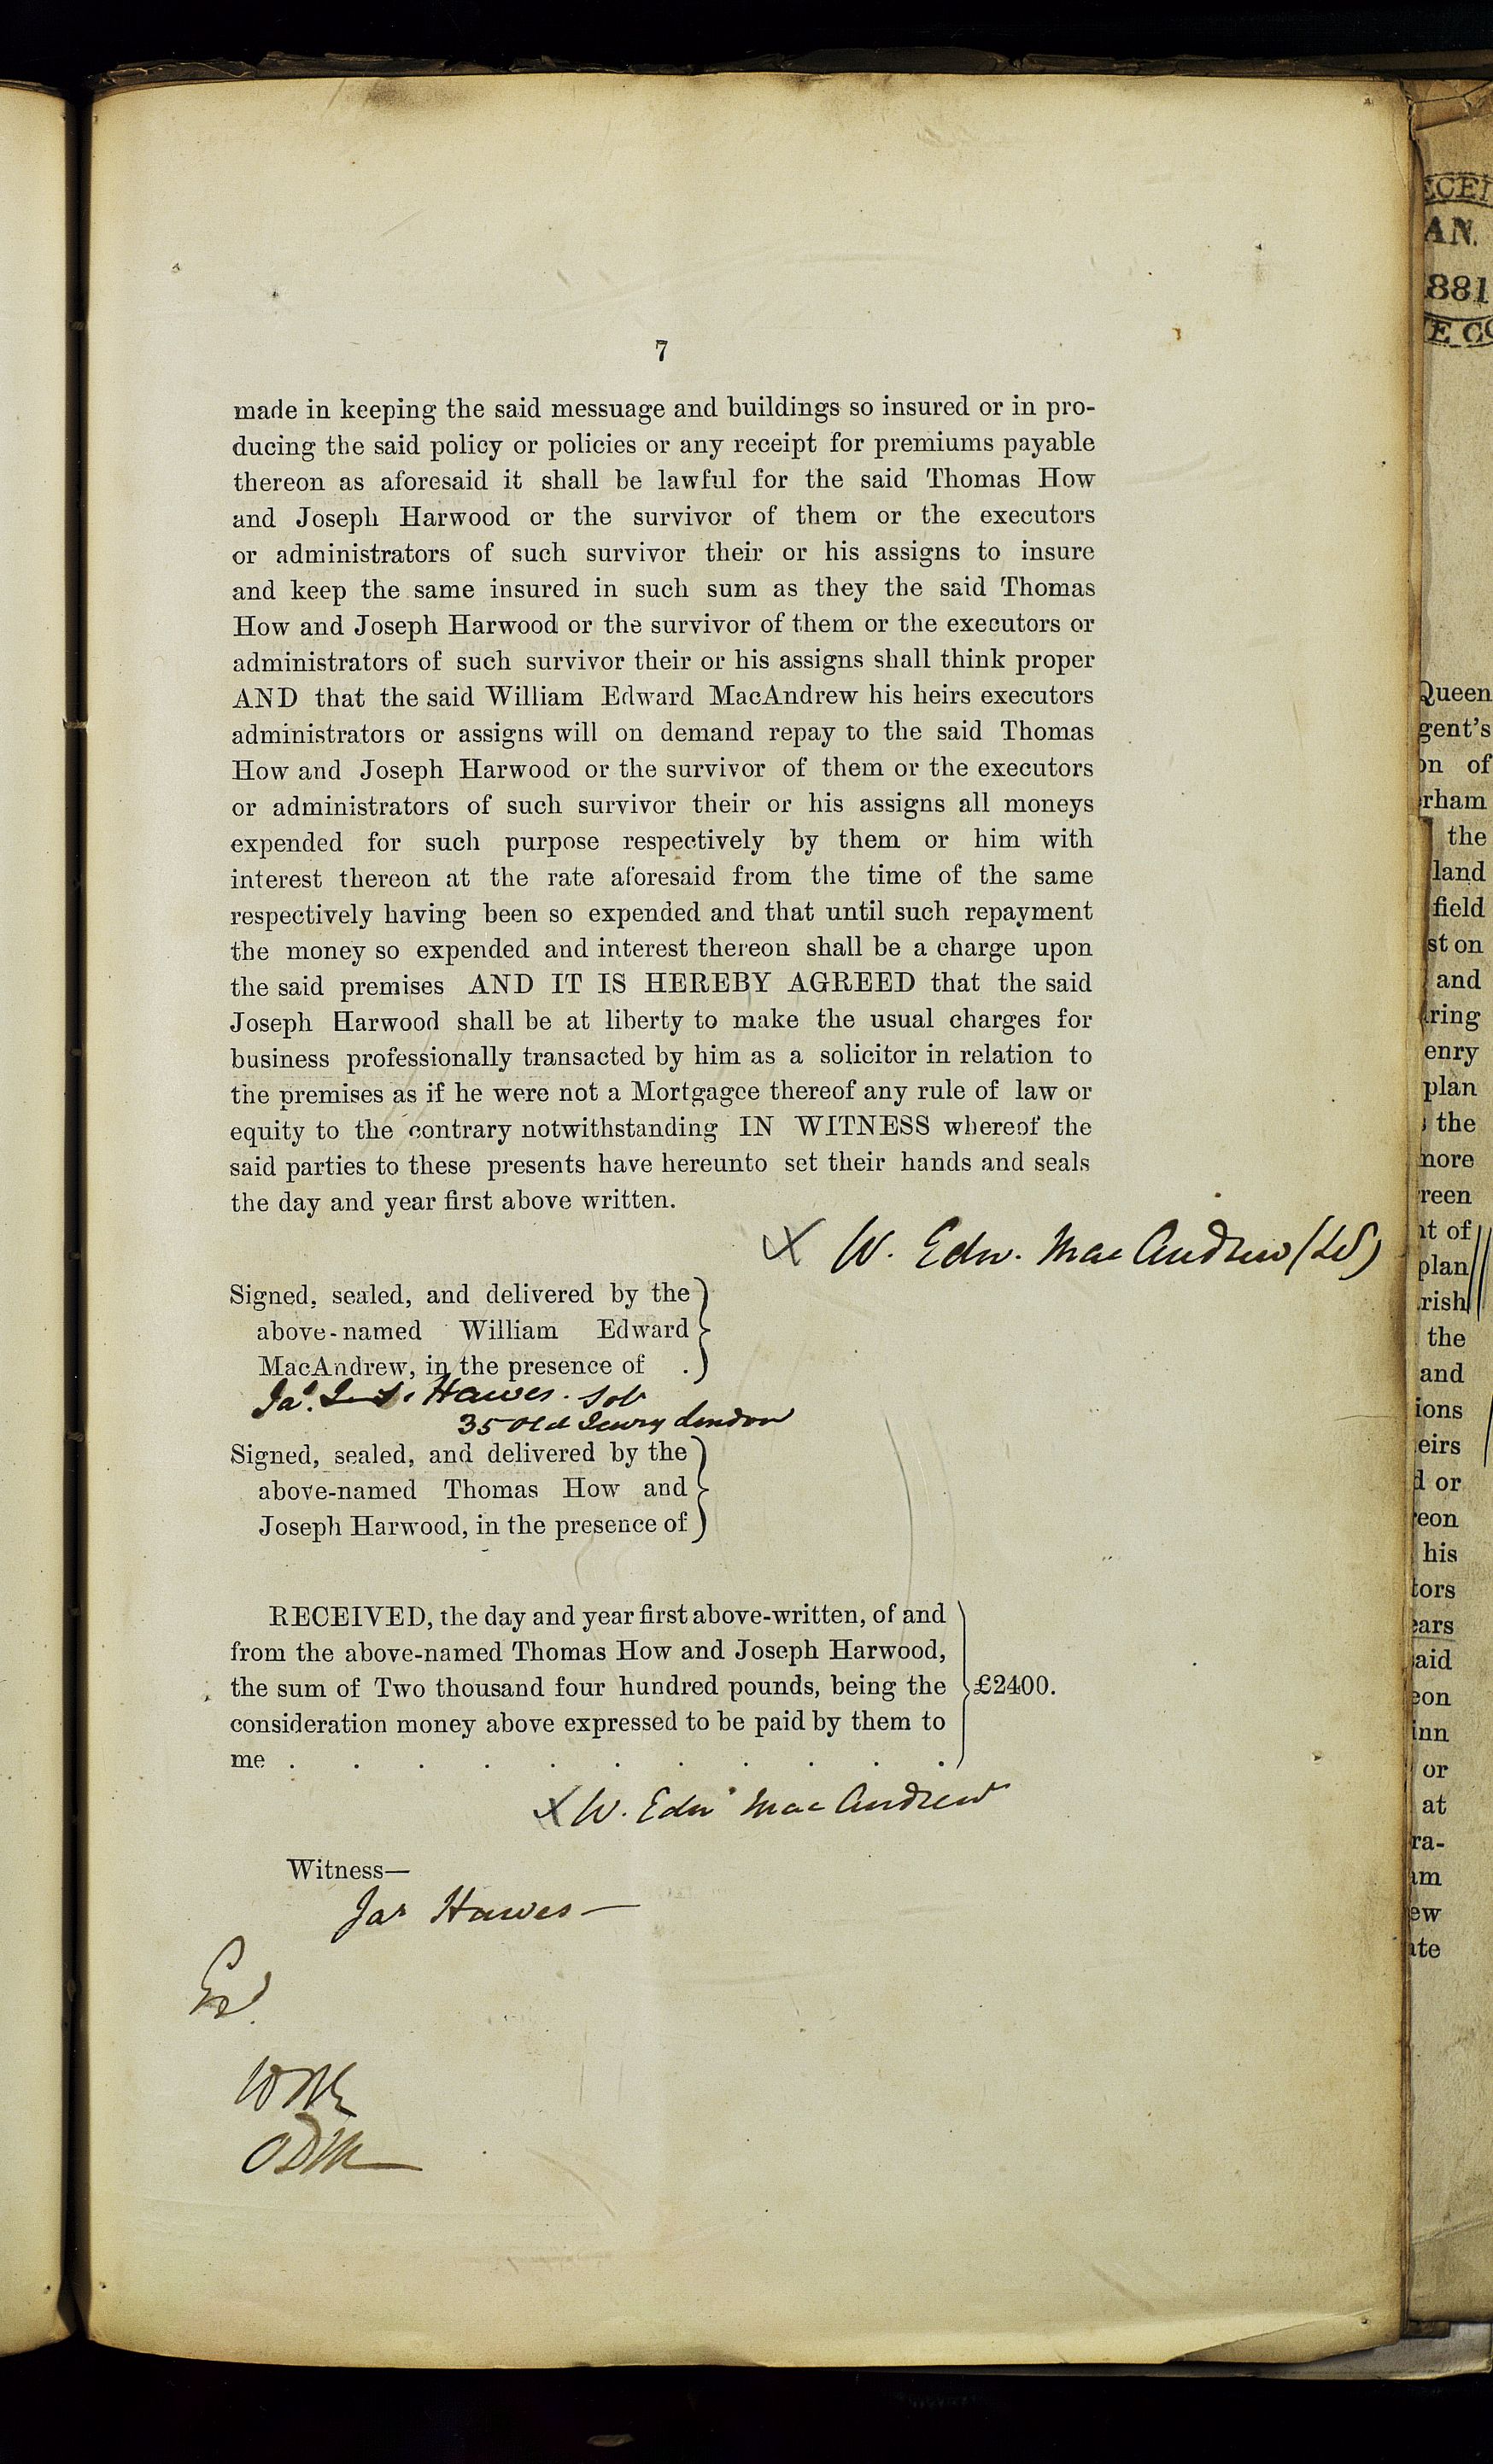 7
made in keeping the said messuage and buildings so insured or in pro-
ducing the said policy or policies or any receipt for premiums payable
thereon as aforesaid it shall be lawful for the said Thomas How
and Joseph Harwood or the survivor of them or the executors
or administrators of such survivor their or his assigns to insure
and keep the same insured in such sum as they the said Thomas
How and Joseph Harwood or the survivor of them or the executors or
administrators of such survivor their or his assigns shall think proper
AND that the said William Edward MacAndrew his heirs executors
administrators or assigns will on demand repay to the said Thomas
How and Joseph Harwood or the survivor of them or the executors
or administrators of such survivor their or his assigns all moneys
expended for such purpose respectively by them or him with
interest thereon at the rate aforesaid from the time of the same
respectively having been so expended and that until such repayment
the money so expended and interest thereon shall be a charge upon
the said premises AND IT IS HEREBY AGREED that the said
Joseph Harwood shall be at liberty to make the usual charges for
business professionally transacted by him as a solicitor in relation to
the premises as if he were not a Mortgagee thereof any rule of law or
equity to the contrary notwithstanding IN WITNESS whereof the
said parties to these presents have hereunto set their hands and seals
the day and year first above written.
X W. Edw. MacAndrew (LS)
Signed, sealed, and delivered by the
above-named William Edward
MacAndrew, in the presence of .
Jas. Hawes. Sol
35 Old Jewry London
Signed, sealed, and delivered by the
above-named Thomas How and
Joseph Harwood, in the presence of
RECEIVED, the day and year first above-written, of and
from the above-named Thomas How and Joseph Harwood,
the sum of Two thousand four hundred pounds, being the £2400.
consideration money above expressed to be paid by them to
me . . . . . . . . . . .
X W. Edw MacAndrew
Witness—
Jas Hawes—
ECEI
AN.
881
E CO
Queen
gent's
on of
rham
the
land
field
st on
and
ring
enry
plan
the
more
reen
nt of
plan
rish
the
and
ions
eirs
d or
eon
his
tors
ears
aid
eon
inn
or
at
ra-
am
ew
ate